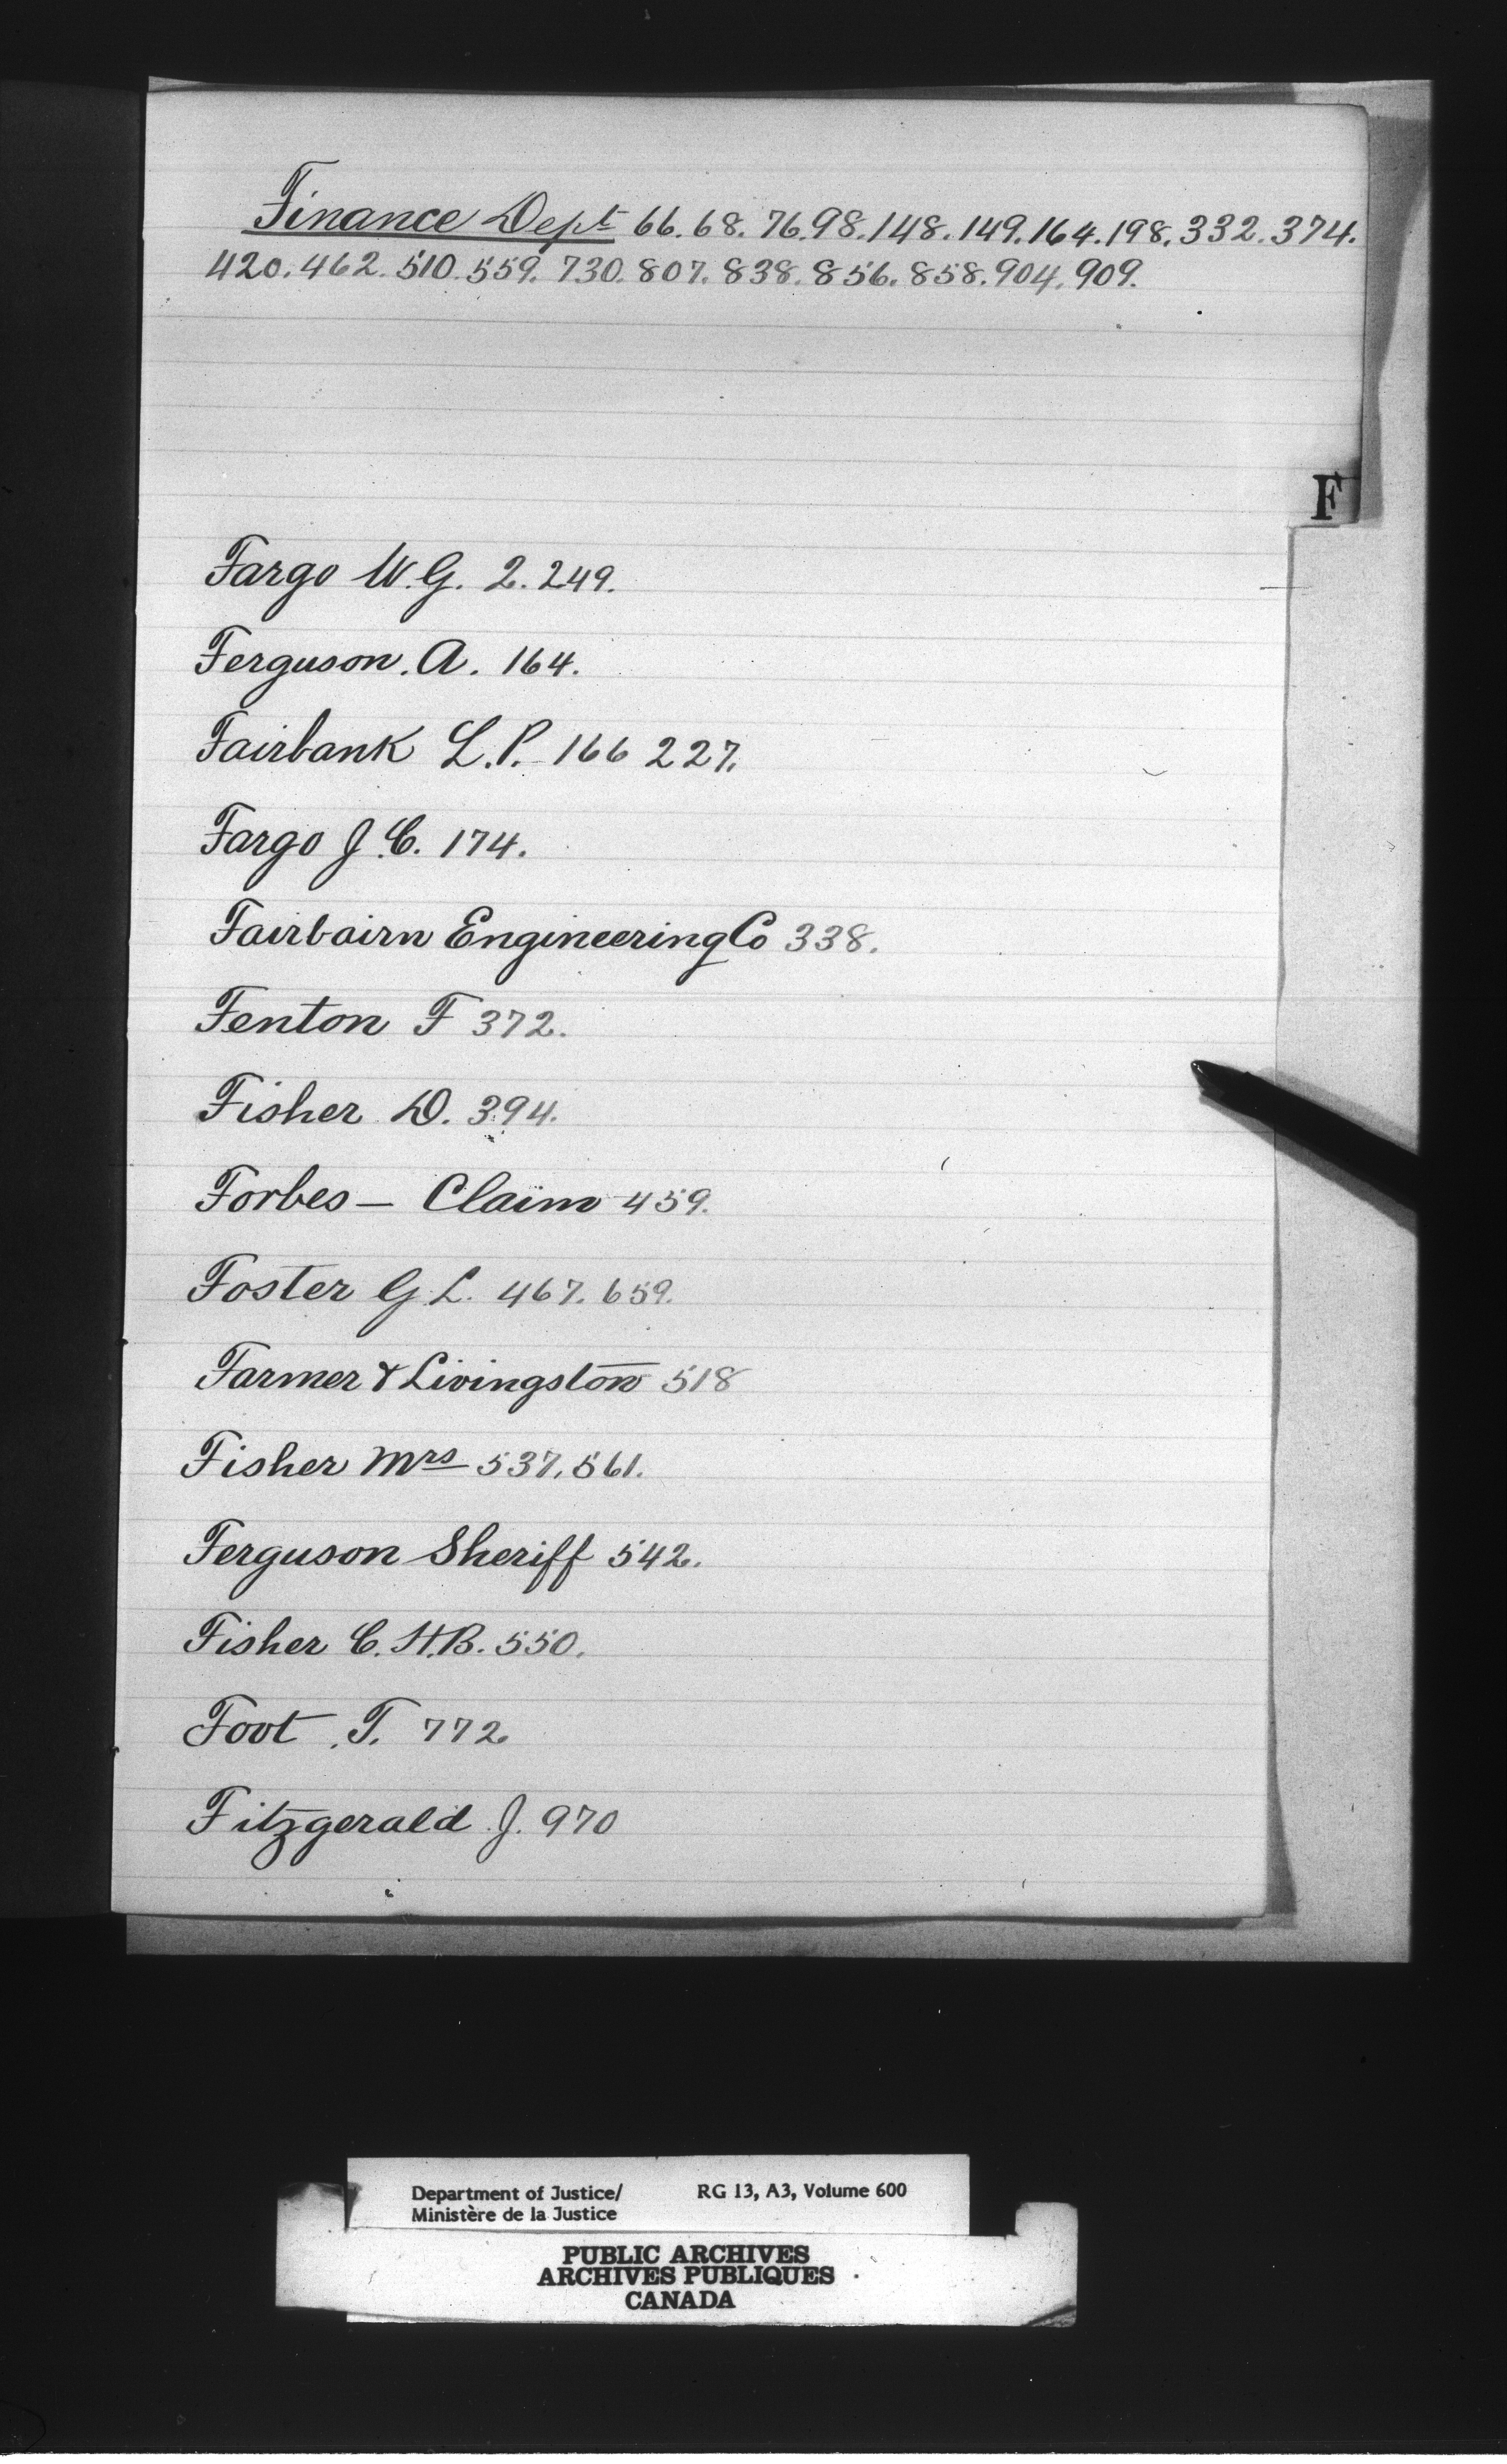 Finance Dept 66. 68. 76. 98. 148. 149. 164. 198. 332. 374.
420. 462. 510. 559. 730. 807. 838. 856. 858. 904. 909.
F
Fargo W. G. 2. 249.
Ferguson. A. 164.
Fairbank L. P. 166 227.
Fargo J. C. 174.
Fairbairn Engineering Co 338.
Fenton F 372.
Fisher D. 394.
Forbes — Claim 459.
Foster G L. 467. 659.
Farmer & Livingston 518
Fisher Mrs 537, 561.
Ferguson Sheriff 542.
Fisher C. H. B. 550.
Foot . T. 772.
Fitzgerald J. 970
Department of Justice/ RG 13, A3, Volume 600
Ministère de la Justice
PUBLIC ARCHIVES
ARCHIVES PUBLIQUES
CANADA